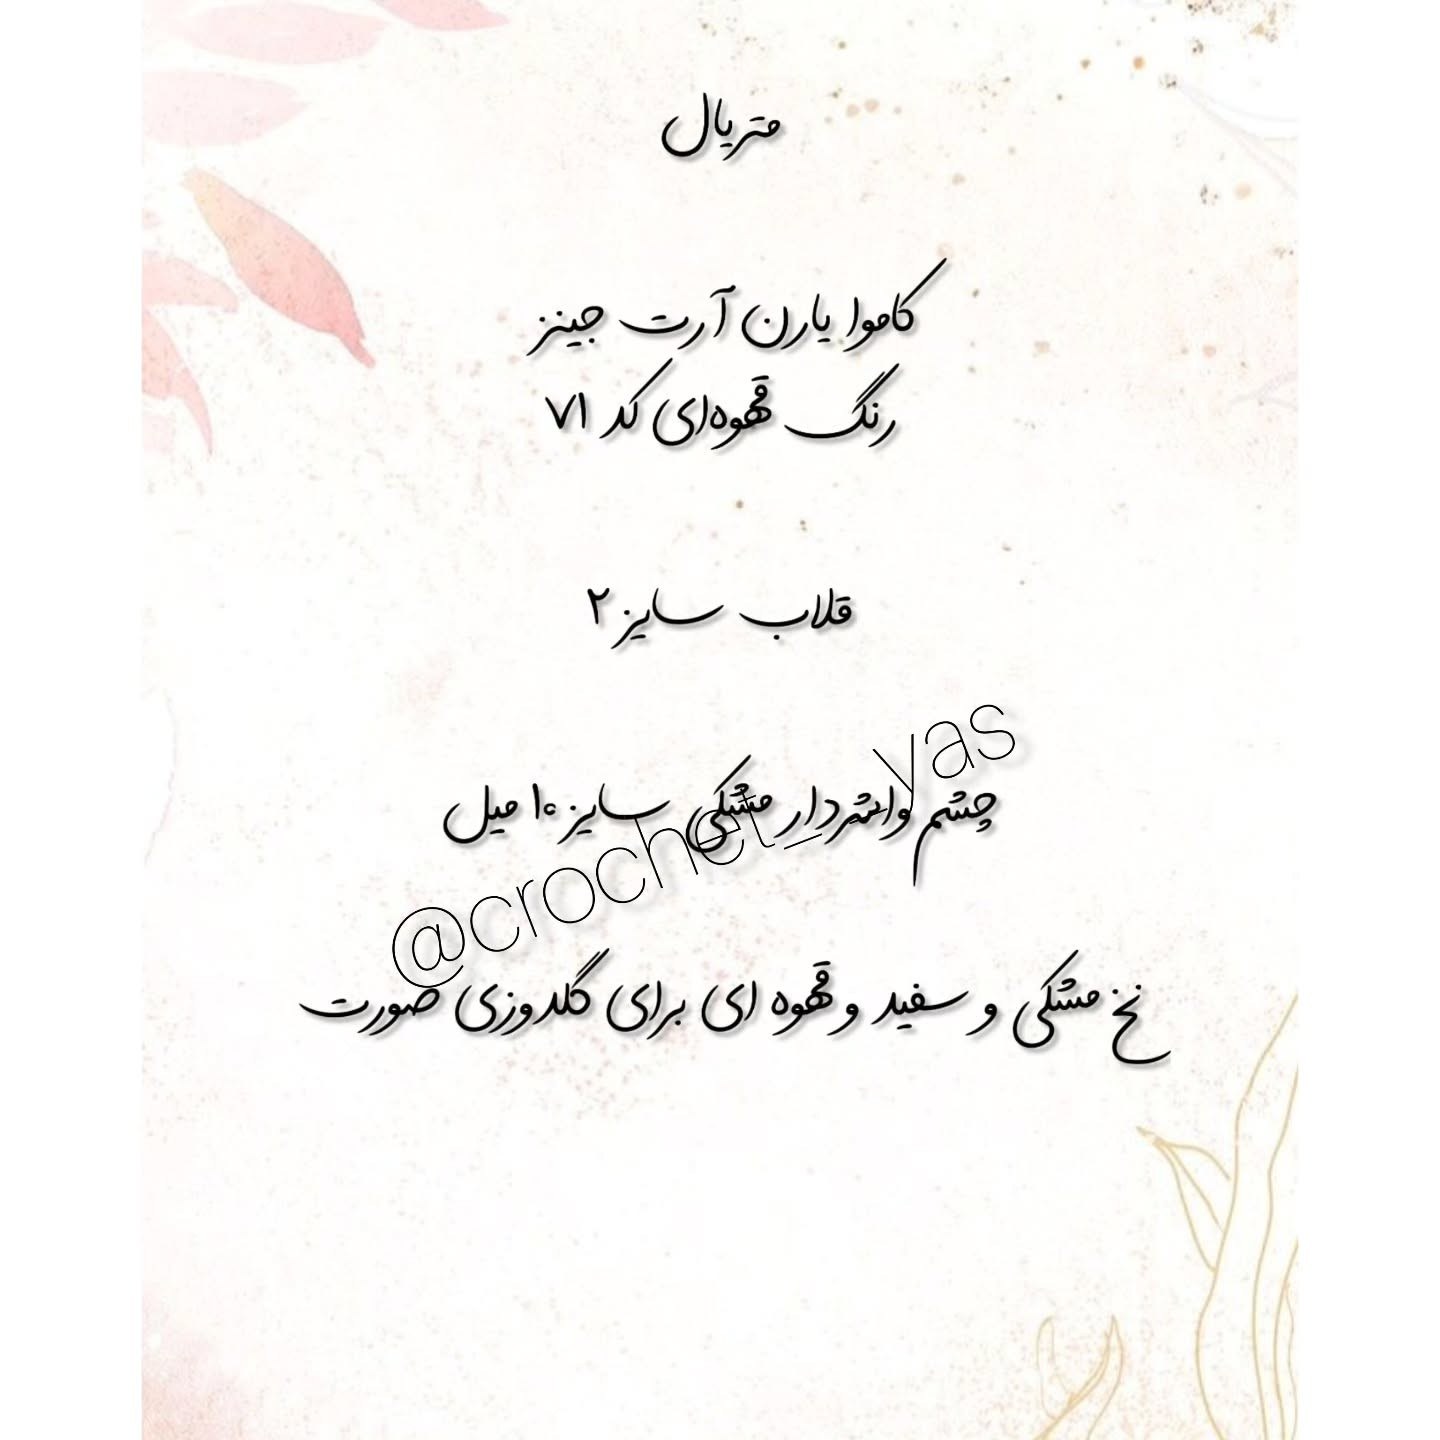 متریال
کاموا یارن آرت جینز
رنگ قهوه‌ای کد ۷۱
قلاب سایز ۲
چشم واشردار مشکی سایز ۱۰ میل
@crochet__yas
نخ مشکی و سفید و قهوه ای برای گلدوزی صورت